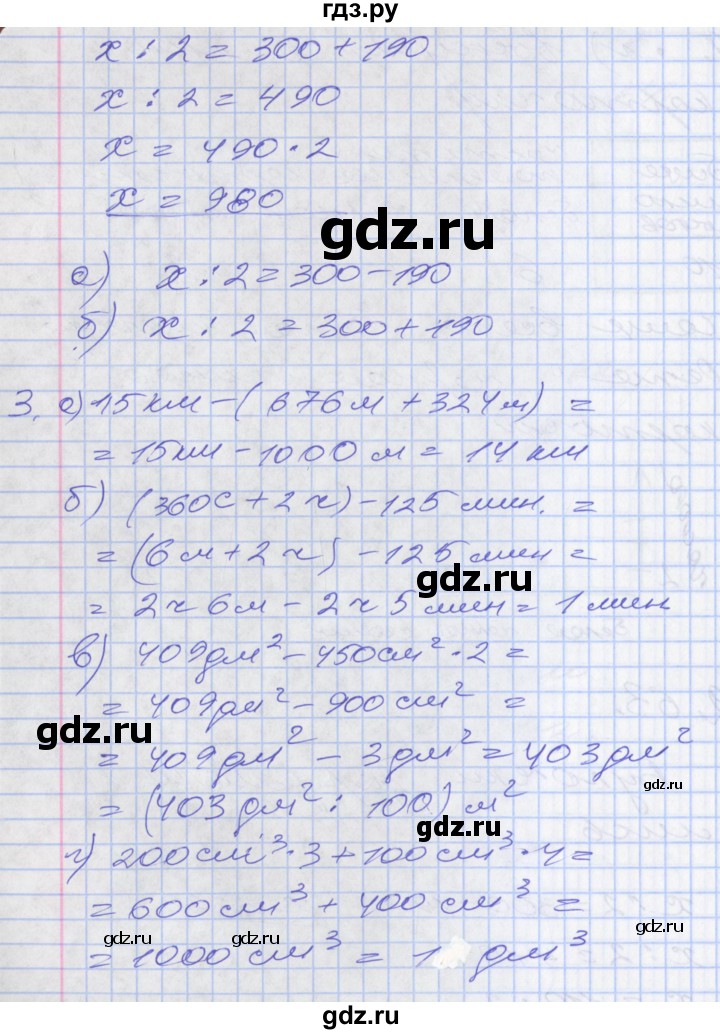 гдз.ру
x : 2 = 300 + 190
x : 2 = 490
x = 490 · 2
x = 980
gdz.ru
а) x : 2 = 300 - 190
б) x : 2 = 300 + 190
3. а) 15 км - (676 м + 324 м) =
= 15 км - 1000 м = 14 км
б) (360 с + 2 ч) - 125 мин. =
= (6 м + 2 ч) - 125 мин =
gdz.ru
= 2 ч 6 м - 2 ч 5 мин = 1 мин
в) 409 дм² - 450 см² · 2 =
= 409 дм² - 900 см² =
gdz.ru
= 409 дм² - 3 дм² = 403 дм²
gdz.ru
= (403 дм² : 100) м²
gdz.ru
г) 200 см³ · 3 + 100 см³ · 4 =
= 600 см³ + 400 см³ =
gdz.ru gdz.ru gdz.ru
= 1000 см³ = 1 дм³
gdz.ru